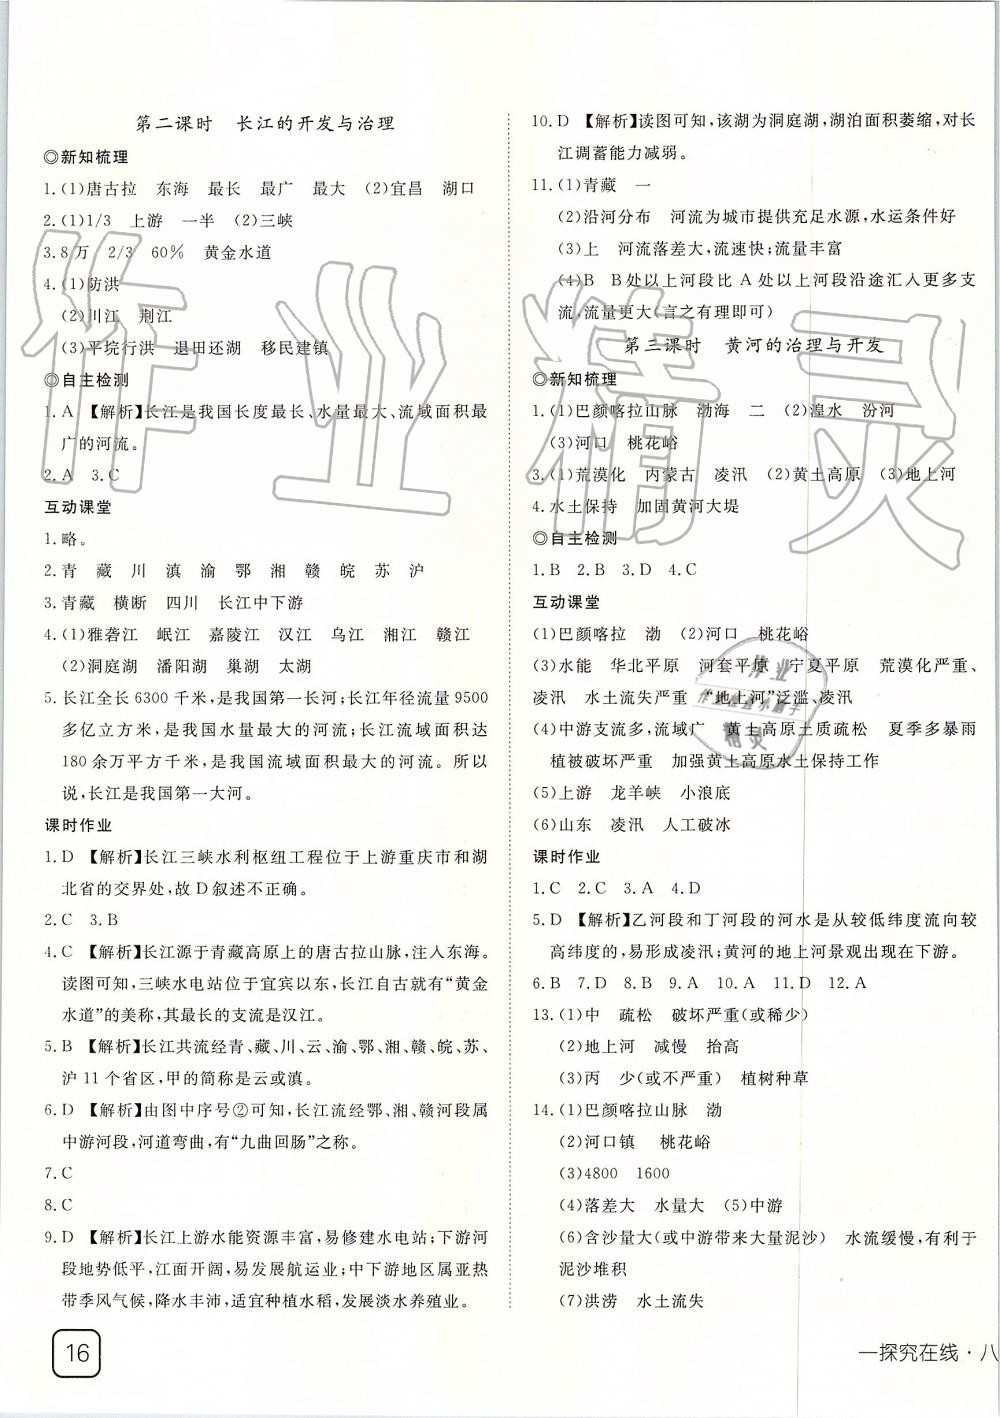 第二课时 长江的开发与治理
◎新知梳理
1.(1)唐古拉 东海 最长 最广 最大 (2)宜昌 湖口
2.(1)1/3 上游 一半 (2)三峡
3.8万 2/3 60% 黄金水道
4.(1)防洪
(2)川江 荆江
(3)平垸行洪 退田还湖 移民建镇
◎自主检测
1.A 【解析】长江是我国长度最长、水量最大、流域面积最
广的河流。
2.A 3.C
互动课堂
1.略。
2.青 藏 川 滇 渝 鄂 湘 赣 皖 苏 沪
3.青藏 横断 四川 长江中下游
4.(1)雅砻江 岷江 嘉陵江 汉江 乌江 湘江 赣江
(2)洞庭湖 潘阳湖 巢湖 太湖
5.长江全长6300千米,是我国第一长河;长江年径流量9500
多亿立方米,是我国水量最大的河流;长江流域面积达
180余万平方千米,是我国流域面积最大的河流。所以
说,长江是我国第一大河。
课时作业
1.D 【解析】长江三峡水利枢纽工程位于上游重庆市和湖
北省的交界处,故D叙述不正确。
2.C 3.B
4.C 【解析】长江源于青藏高原上的唐古拉山脉,注入东海。
读图可知,三峡水电站位于宜宾以东,长江自古就有“黄金
水道”的美称,其最长的支流是汉江。
5.B 【解析】长江共流经青、藏、川、云、渝、鄂、湘、赣、皖、苏、
沪11个省区,甲的简称是云或滇。
6.D 【解析】由图中序号②可知,长江流经鄂、湘、赣河段属
中游河段,河道弯曲,有“九曲回肠”之称。
7.C
8.C
9.D 【解析】长江上游水能资源丰富,易修建水电站;下游河
段地势低平,江面开阔,易发展航运业;中下游地区属亚热
带季风气候,降水丰沛,适宜种植水稻,发展淡水养殖业。
10.D 【解析】读图可知,该湖为洞庭湖,湖泊面积萎缩,对长
江调蓄能力减弱。
11.(1)青藏 一
(2)沿河分布 河流为城市提供充足水源,水运条件好
(3)上 河流落差大,流速快;流量丰富
(4)B B处以上河段比A处以上河段沿途汇入更多支
流,流量更大(言之有理即可)
第三课时 黄河的治理与开发
◎新知梳理
1.(1)巴颜喀拉山脉 渤海 二 (2)湟水 汾河
(3)河口 桃花峪
3.(1)荒漠化 内蒙古 凌汛 (2)黄土高原 (3)地上河
4.水土保持 加固黄河大堤
◎自主检测
1.B 2.B 3.D 4.C
互动课堂
(1)巴颜喀拉 渤 (2)河口 桃花峪
(3)水能 华北平原 河套平塬 宁夏平原 荒漠化严重、
凌汛 水土流失严重 “地上河”泛滥、凌汛
(4)中游支流多,流域广 黄土高原土质疏松 夏季多暴雨
植被破坏严重 加强黄土高原水土保持工作
(5)上游 龙羊峡 小浪底
(6)山东 凌汛 人工破冰
课时作业
1.C 2.C 3.A 4.D
5.D 【解析】乙河段和丁河段的河水是从较低纬度流向较
高纬度的,易形成凌汛;黄河的地上河景观出现在下游。
6.B 7.D 8.B 9.A 10.A 11.D 12.A
13.(1)中 疏松 破坏严重(或稀少)
(2)地上河 减慢 抬高
(3)丙 少(或不严重) 植树种草
14.(1)巴颜喀拉山脉 渤
(2)河口镇 桃花峪
(3)4800 1600
(4)落差大 水量大 (5)中游
(6)含沙量大(或中游带来大量泥沙) 水流缓慢,有利于
泥沙堆积
(7)洪涝 水土流失
16
一探究在线·八
作业精灵